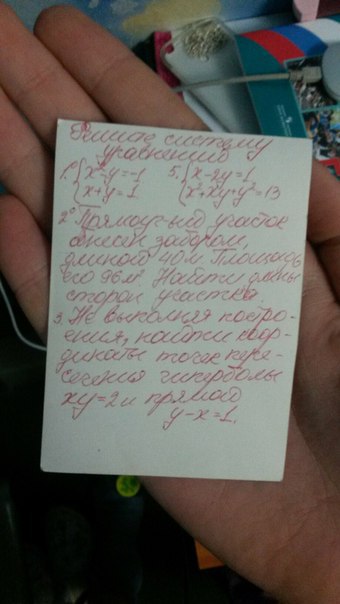 Решите систему
уравнений
1.° { x²-y=-1 5. { x-2y=1
x+y=1 x²+xy+y²=13
2° Прямоуг-ый участок
обнесен забором,
длиной 40м. Площадь
его 96м². Найти длины
сторон участка.
3. Не выполняя постро-
ения, найти коор-
динаты точек пере-
сечения гиперболы
xy=2 и прямой
y-x=1.